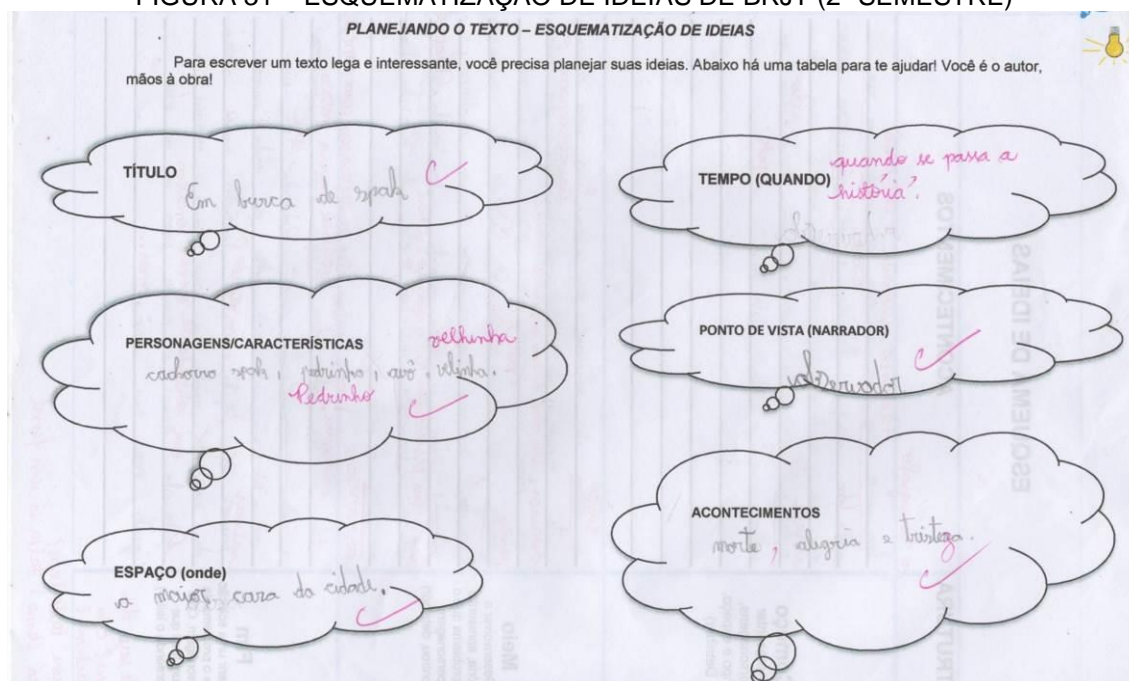 FIGURA 31 – ESQUEMATIZAÇÃO DE IDEIAS DE BRJ1 (2º SEMESTRE)
PLANEJANDO O TEXTO – ESQUEMATIZAÇÃO DE IDEIAS
Para escrever um texto lega e interessante, você precisa planejar suas ideias. Abaixo há uma tabela para te ajudar! Você é o autor,
mãos à obra!
TÍTULO
Em busca de spak
PERSONAGENS/CARACTERÍSTICAS
velhinha
cachorro spak, pedrinho, avô, velinha.
Pedrinho
ESPAÇO (onde)
a maior caza da cidade.
TEMPO (QUANDO)
quando se passa a
história?
PONTO DE VISTA (NARRADOR)
observador
ACONTECIMENTOS
morte, alegria e tristeza.